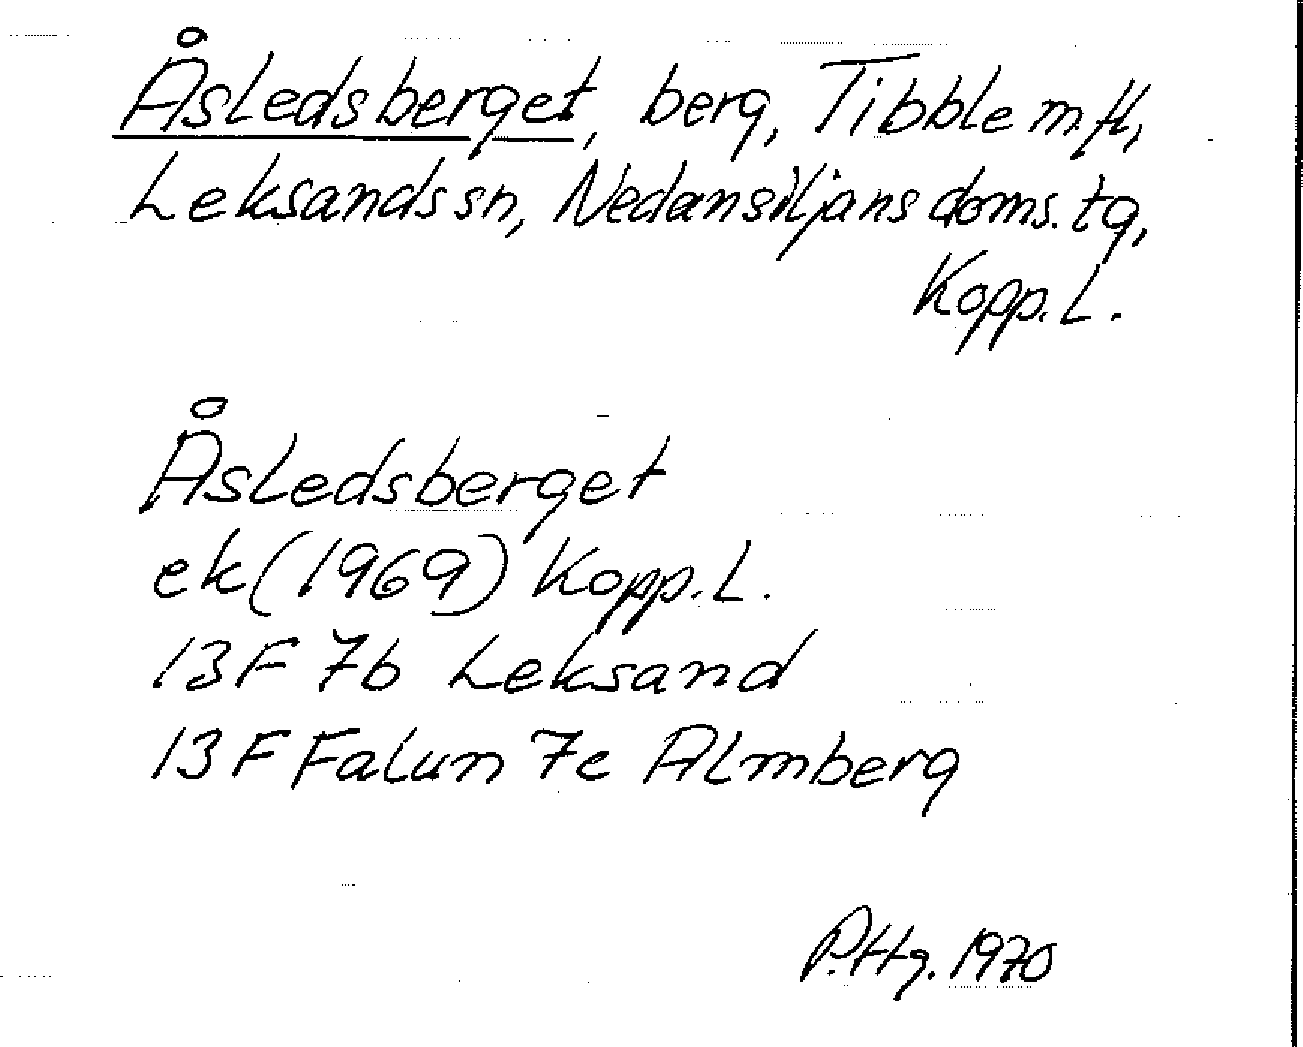 Åsledsberget, berg, Tibble m.fl,
Leksands sn, Nedansiljans doms. tg,
Kopp. L.
Åsledsberget
ek (1969) Kopp. L.
13F 7b Leksand
13F Falun 7c Almberg
P.Hg. 1970